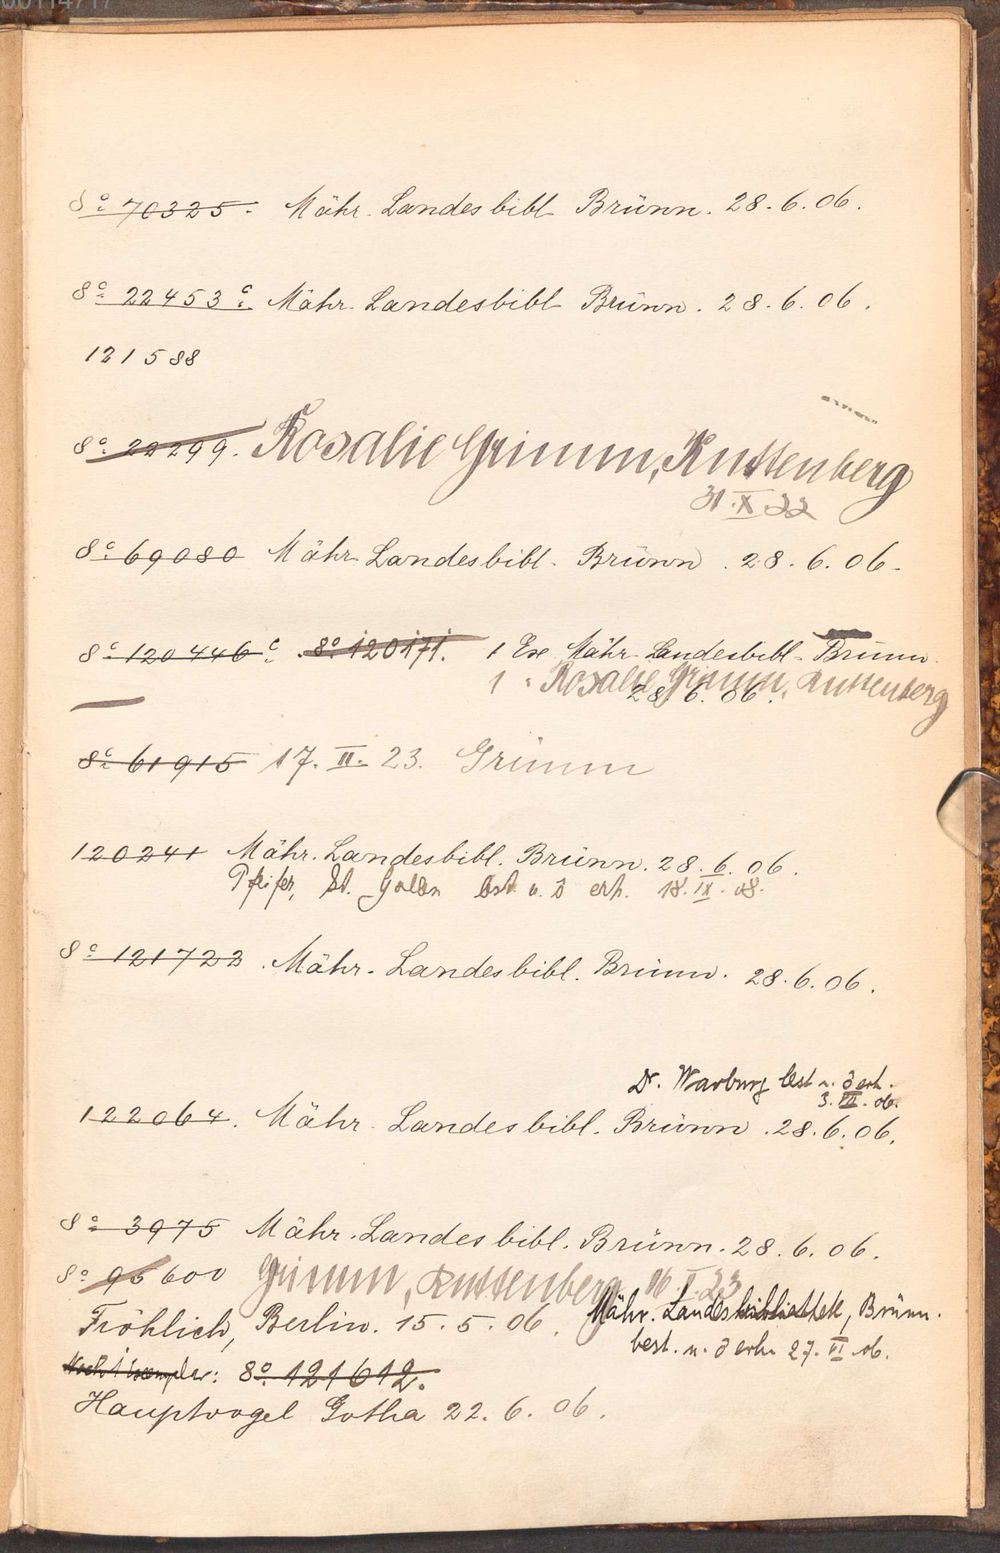 8º 70325. Mähr. Landesbibl. Brünn. 28.6.06.
8º 22453 c. Mähr. Landesbibl. Brünn. 28.6.06.
121588
8º 22299. Rosalie Grimm, Ruttenberg
31.X 22
8º 69080 Mähr. Landesbibl. Brünn. 28.6.06.
8º 120446 c. 8º 120171. 1 Ex. Mähr. Landesbibl. Brünn.
1 " Rosalie Grimm, Ruttenberg
28.6.06.
8º 61915 17. II. 23. Grimm
120241 Mähr. Landesbibl. Brünn. 28.6.06.
Pfeifer, St. Gallen best. u. erh. 18. IX. 08.
8º 121723. Mähr. Landesbibl. Brünn. 28.6.06.
Dr. Warburg best. u. erh.
3. VII. 06.
122064. Mähr. Landesbibl. Brünn. 28.6.06.
8º 3975 Mähr. Landesbibl. Brünn. 28.6.06.
8º 95600 Grimm, Ruttenberg 16 I 23
Mähr. Landesbibliothek, Brünn.
Fröhlich, Berlin. 15.5.06.
best. u. erh. 27. VI 06.
Noch 1 Exemplar: 8º 121612.
Hauptvogel Gotha 22.6.06.